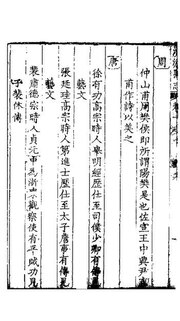 周
仲山甫周樊侯即所謂陽樊是也佐宣王中興尹
甫作詩以美之
唐
徐有功高宗時人舉明經歷仕至司僕少卿有傳見
藝文
張廷珪高宗時人第進士歷仕至太子詹事有傳見
藝文
裴肅德宗時人貞元中為浙東觀察使有平戎功見
子裴休傳